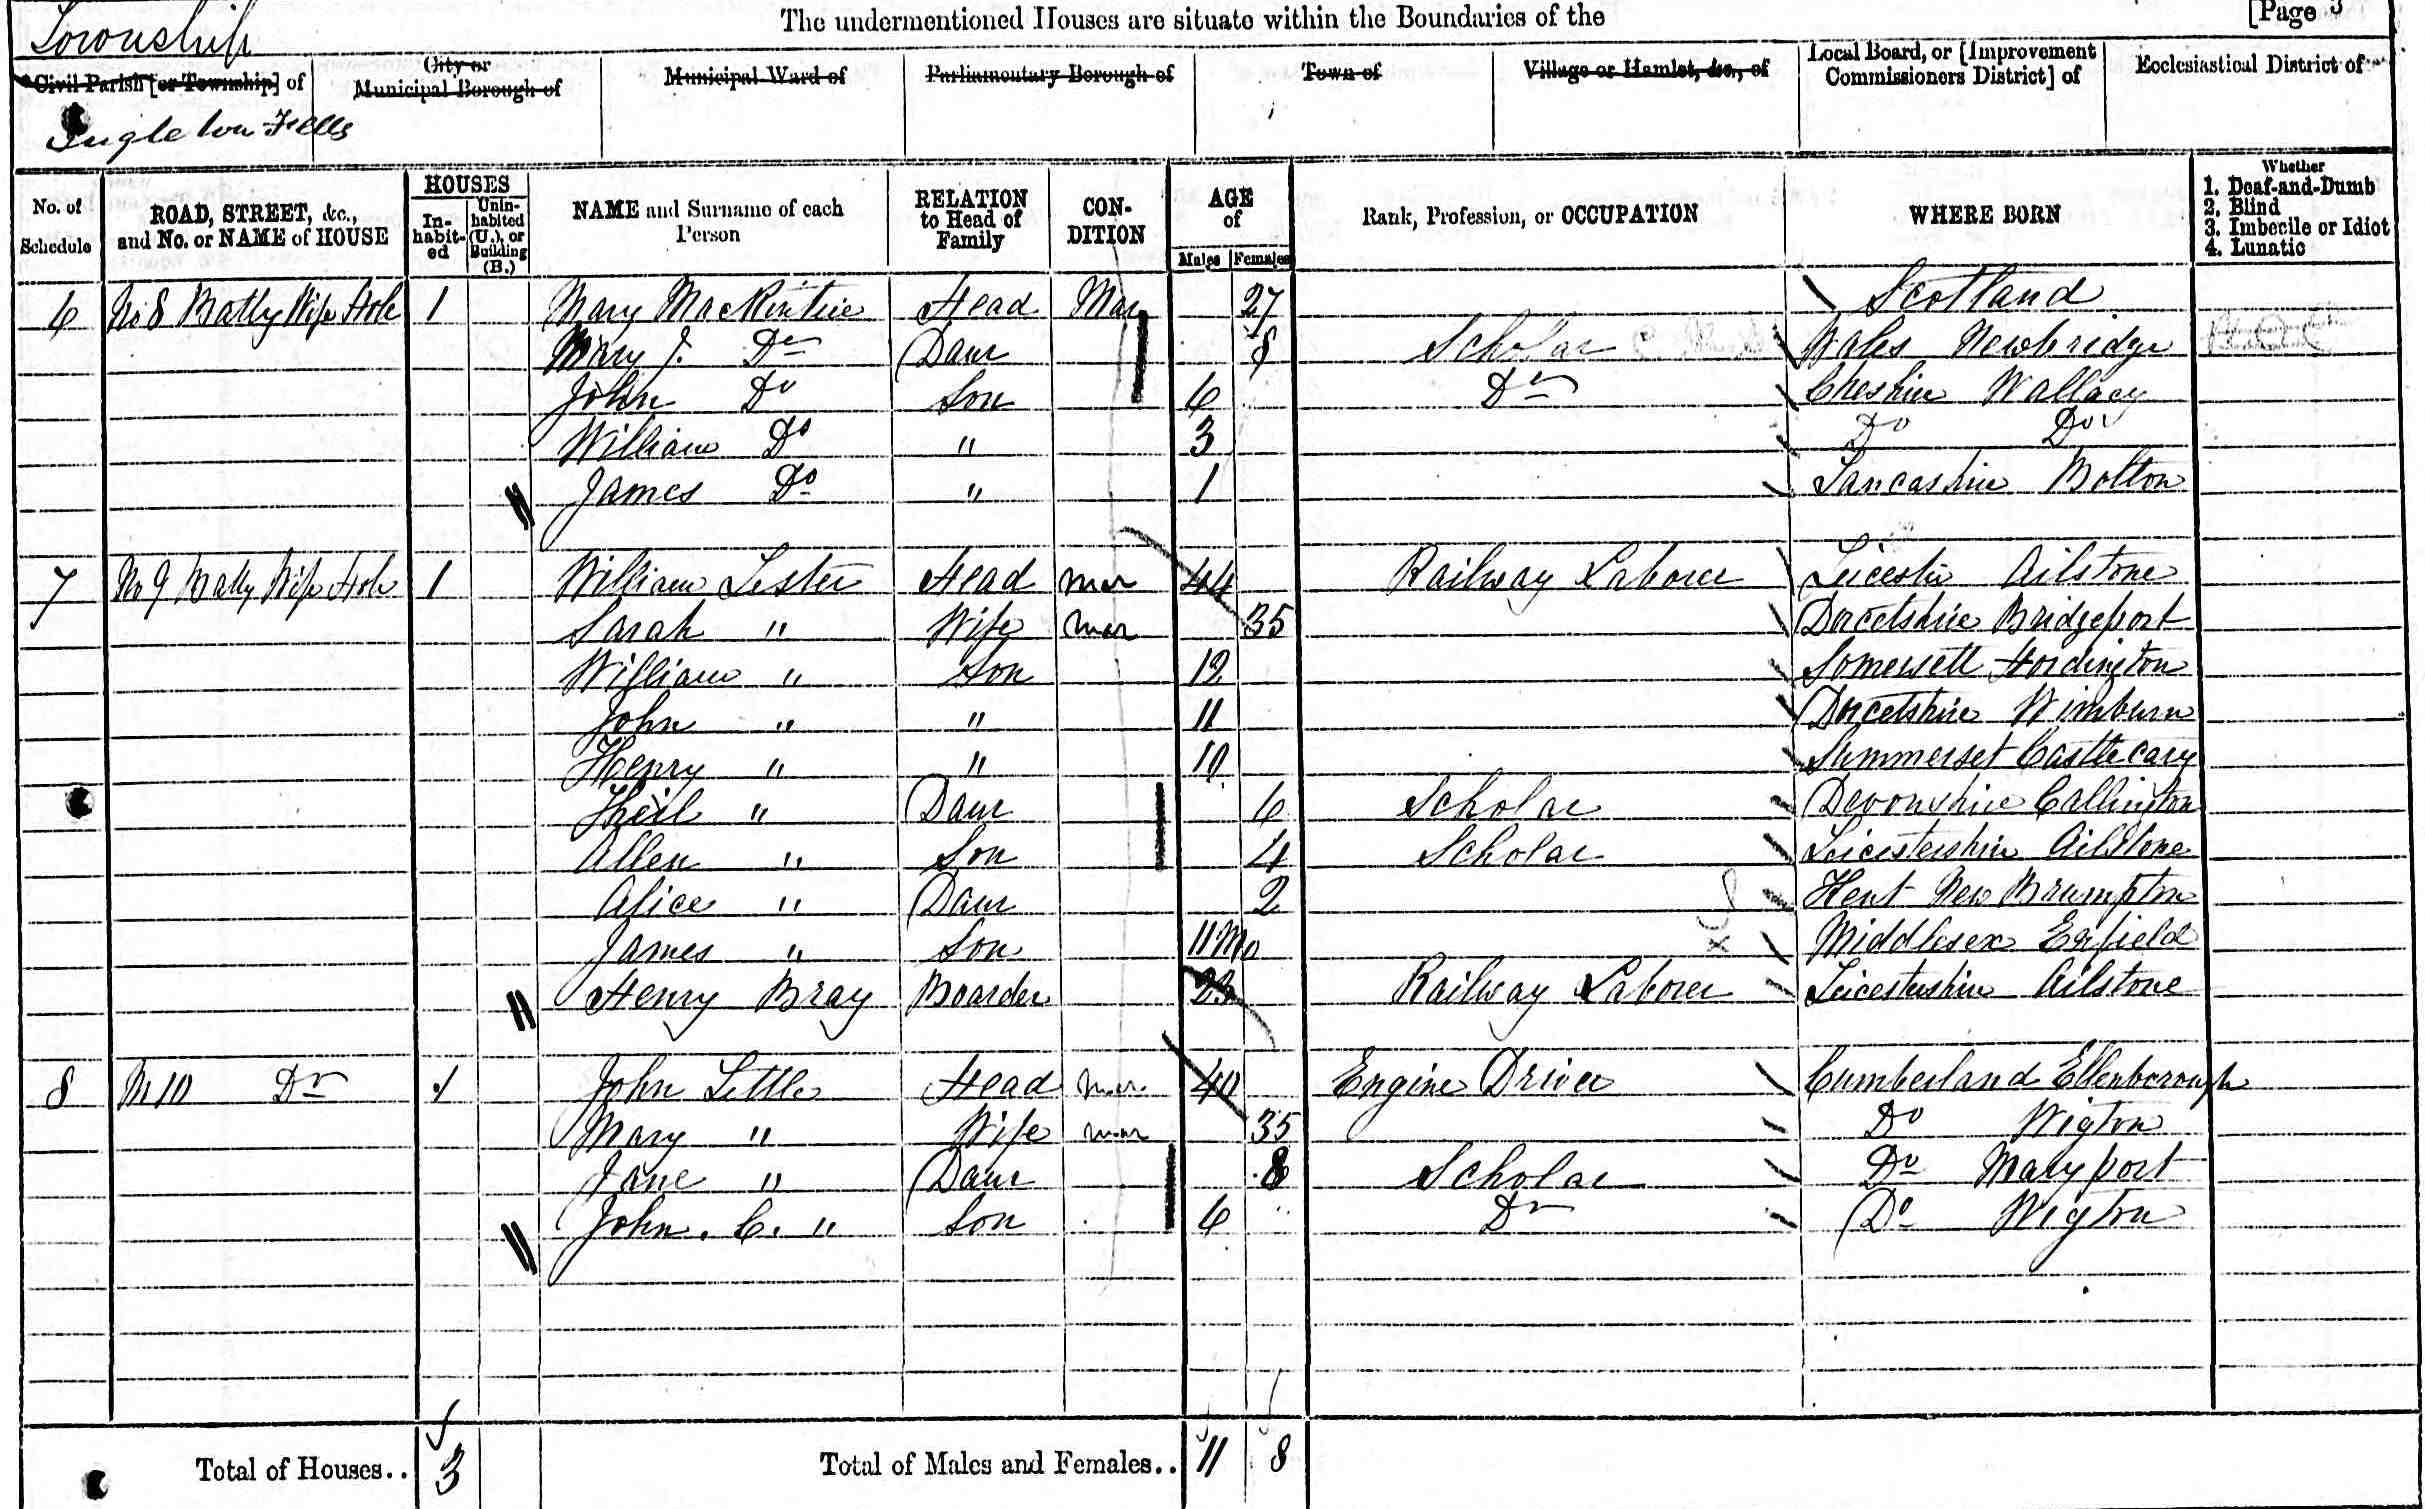 The undermentioned Houses are situate within the Boundaries of the [Page 3
Township
Civil Parish [or Township] of City or Municipal Borough of Municipal Ward of Parliamentary Borough of Town of Village or Hamlet, &c., of Local Board, or [Improvement Commissioners District] of Ecclesiastical District of
Ingleton Fells
No. of Schedule ROAD, STREET, &c., and No. or NAME of HOUSE HOUSES Inhabited Uninhabited (U.), or Building (B.) NAME and Surname of each Person RELATION to Head of Family CONDITION AGE of Males Females Rank, Profession, or OCCUPATION WHERE BORN Whether 1. Deaf-and-Dumb 2. Blind 3. Imbecile or Idiot 4. Lunatic
6 No 8 Batty Wife Hole 1 Mary MacKintire Head Mar 27 Scotland
Mary J. Do Daur 8 Scholar Wales Newbridge
John Do Son 6 Do Cheshire Wallacy
William Do " 3 Do Do
James Do " 1 Lancashire Bolton
7 No 9 Batty Wife Hole 1 William Lester Head mar 44 Railway Laborer Leicester Ailstone
Sarah " Wife mar 35 Dorcetshire Bridgeport
William " Son 12 Somersett Hordington
John " " 11 Dorcetshire Wimburn
Henry " " 10 Summerset Castlecary
" Daur 6 Scholar Devonshire Callington
Allen " Son 4 Scholar Leicestershire Ailstone
Alice " Daur 2 Kent New Brumpton
James " Son 11 Mo Middlesex Enfield
Henry Bray Boarder Railway Laborer Leicestershire Ailstone
8 No 10 Do 1 John Little Head mar. 40 Engine Driver Cumberland Ellenborough
Mary " Wife mar 35 Do Wigton
Jane " Daur 8 Scholar Do Maryport
John. C. " Son 6 Do Do Wigton
Total of Houses.. 3 Total of Males and Females.. 11 8